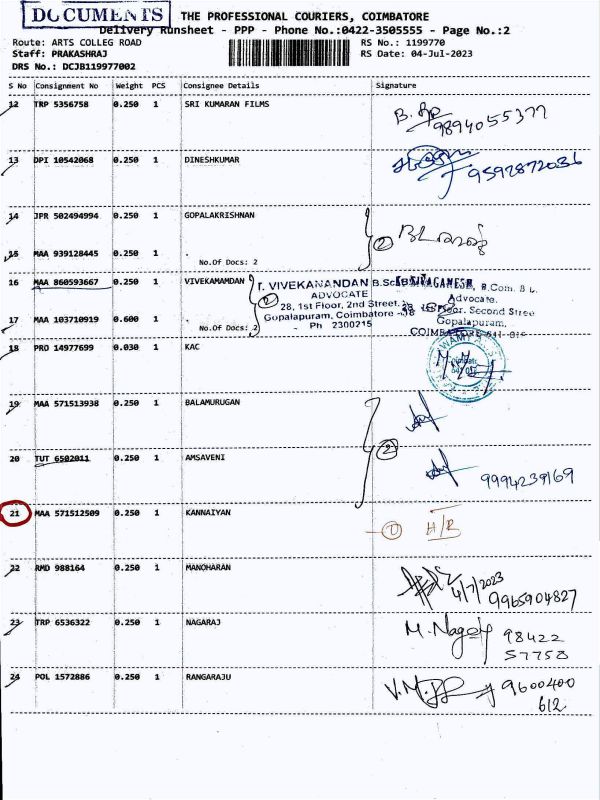 DOCUMENTS
THE PROFESSIONAL COURIERS, COIMBATORE
Delivery Runsheet - PPP - Phone No.:0422-3505555 - Page No.:2
Route: ARTS COLLEG ROAD
RS No.: 1199770
Staff: PRAKASHRAJ
RS Date: 04-Jul-2023
DRS No.: DCJB119977002
S No Consignment No Weight PCS Consignee Details Signature
12 TRP 5356758 0.250 1 SRI KUMARAN FILMS
9894055377
13 DPI 10542068 0.250 1 DINESHKUMAR
9597872036
14 JPR 502494994 0.250 1 GOPALAKRISHNAN
2
15 MAA 939128445 0.250 1 .
No.Of Docs: 2
16 MAA 860593667 0.250 1 VIVEKAMAMDAN
2
T. VIVEKANANDAN B.Sc.
ADVOCATE
28, 1st Floor, 2nd Street,
Gopalapuram, Coimbatore -
Ph 2300215
B.Com. B.L.
Advocate.
Floor. Second Street
Gopalapuram,
17 MAA 103710919 0.600 1 .
No.Of Docs: 2
18 PRO 14977699 0.030 1 KAC
19 MAA 571513938 0.250 1 BALAMURUGAN
2
20 TUT 6502011 0.250 1 AMSAVENI
9994239169
21 MAA 571512509 0.250 1 KANNAIYAN
22 RMD 988164 0.250 1 MANOHARAN
4/7/2023
9965904827
23 TRP 6536322 0.250 1 NAGARAJ
M. Nagaraj 98422
57758
24 POL 1572886 0.250 1 RANGARAJU
9600400
612